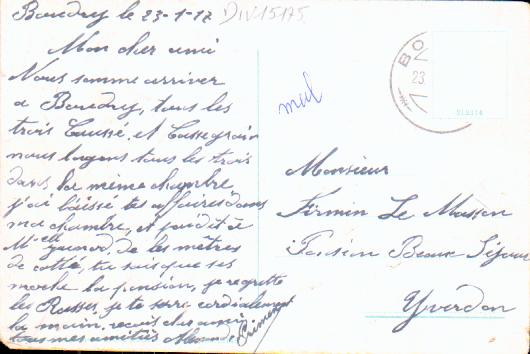 Boudry le 23-1-17
DIV15175
Mon cher ami
Nous somme arriver
a Boudry, tous les
trois Caussé, et Cassegrain
nous logons tous les trois
dans la même chambre
j'ai laissé tes affaires dans
ma chambre, et j'ai dit à
Mlle de les mettres
de coté, tu sais que ses
moche la pension, je regrette
les Russes, je te serre cordialement
la main, reçois cher ami
tous mes amitiés
mul
BO
23
Monsieur
Firmin Le Masson
Pension Beaux Séjour
Yverdon